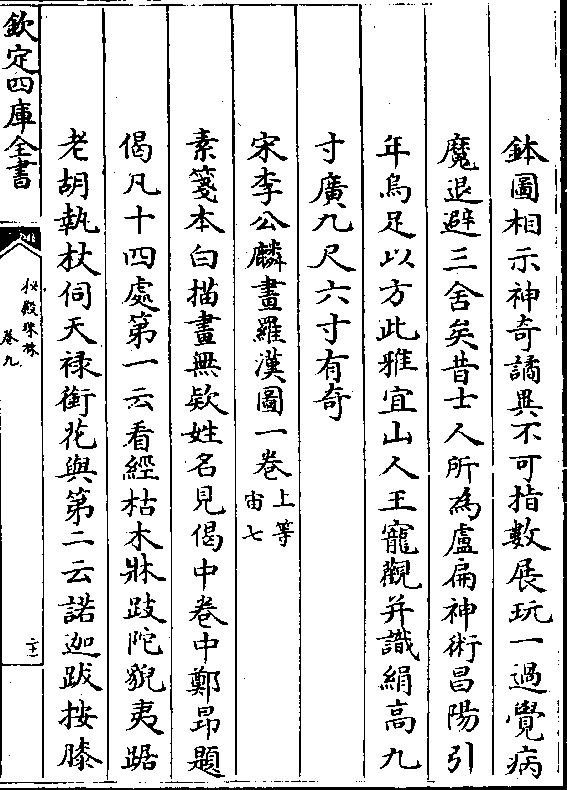 鉢圖相示神奇譎異不可指數展玩一過覺病
魔退避三舍矣昔士人所為盧扁神術昌陽引
年烏足以方此雅宜山人王寵觀并識絹高九
寸廣九尺六寸有奇
宋李公麟畫羅漢圖一卷上等宙七
素箋本白描畫無欵姓名見偈中卷中鄭昻題
偈凡十四處第一云看經枯木牀跂陀貎夷踞
老胡執杖伺天禄銜花與第二云諾迦跋按膝
欽定四庫全書
秘殿珠林
卷九